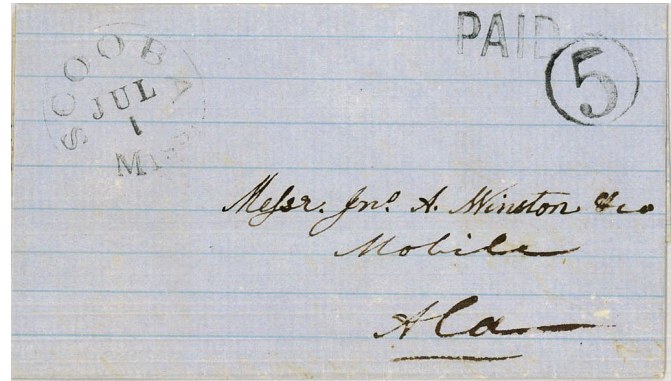 SCOOBA
JUL
1
MIS
PAID
5
Messr. Jno. A. Winston & co
Mobile
Ala